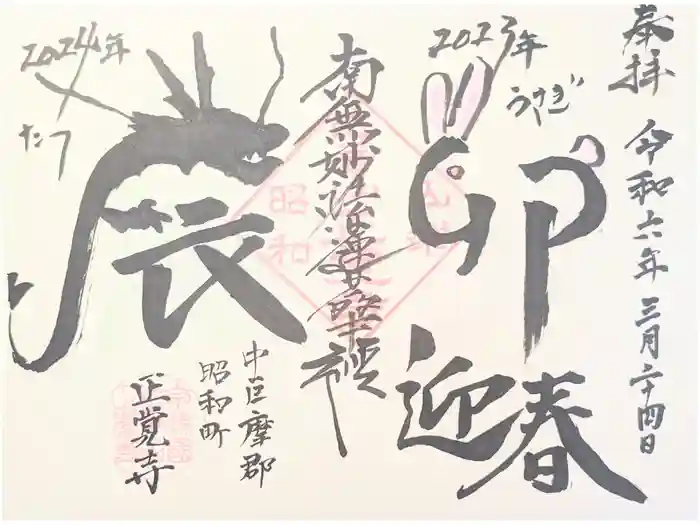 奉拝
令和六年三月二十四日
2023年
うさぎ
卯
迎春
南無妙法蓮華経
2024年
たつ
辰
中巨摩郡
昭和町
正覚寺
昭和